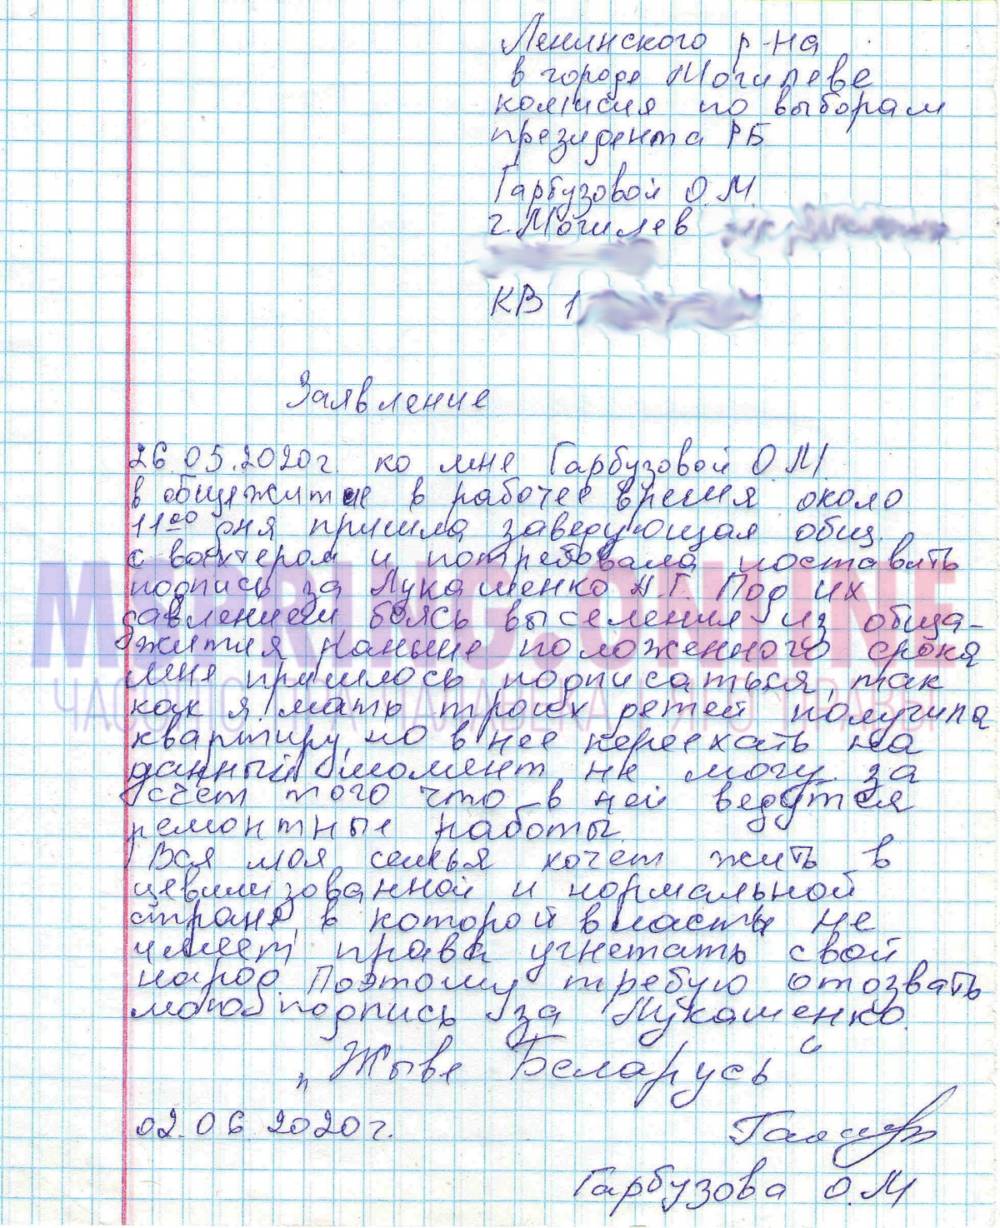 Ленинского р-на
в городе Могилеве
комисия по выборам
президента РБ
Гарбузовой О.М.
г. Могилев
КВ 1
Заявление
26.05.2020г. ко мне Гарбузовой О.М
в общежитие в рабочее время около
11⁰⁰ дня пришла заведующая общ.
с вахтером и потребовала поставить
подпись за Лукашенко А.Г. Под их
давлением боясь выселения из обща-
жития раньше положенного срока
мне пришлось подписаться, так
как я мать троих детей получила
квартиру, но в нее переехать на
данный момент не могу за
счет того что в ней ведутся
ремонтные работы.
Вся моя семья хочет жить в
цевилизованной и нормальной
стране, в которой власть не
имеет права угнетать свой
народ. Поэтому требую отозвать
мою подпись за Лукашенко.
„Жыве Беларусь“
02.06.2020г.
Гарбузова О.М
MSPRING.ONLINE